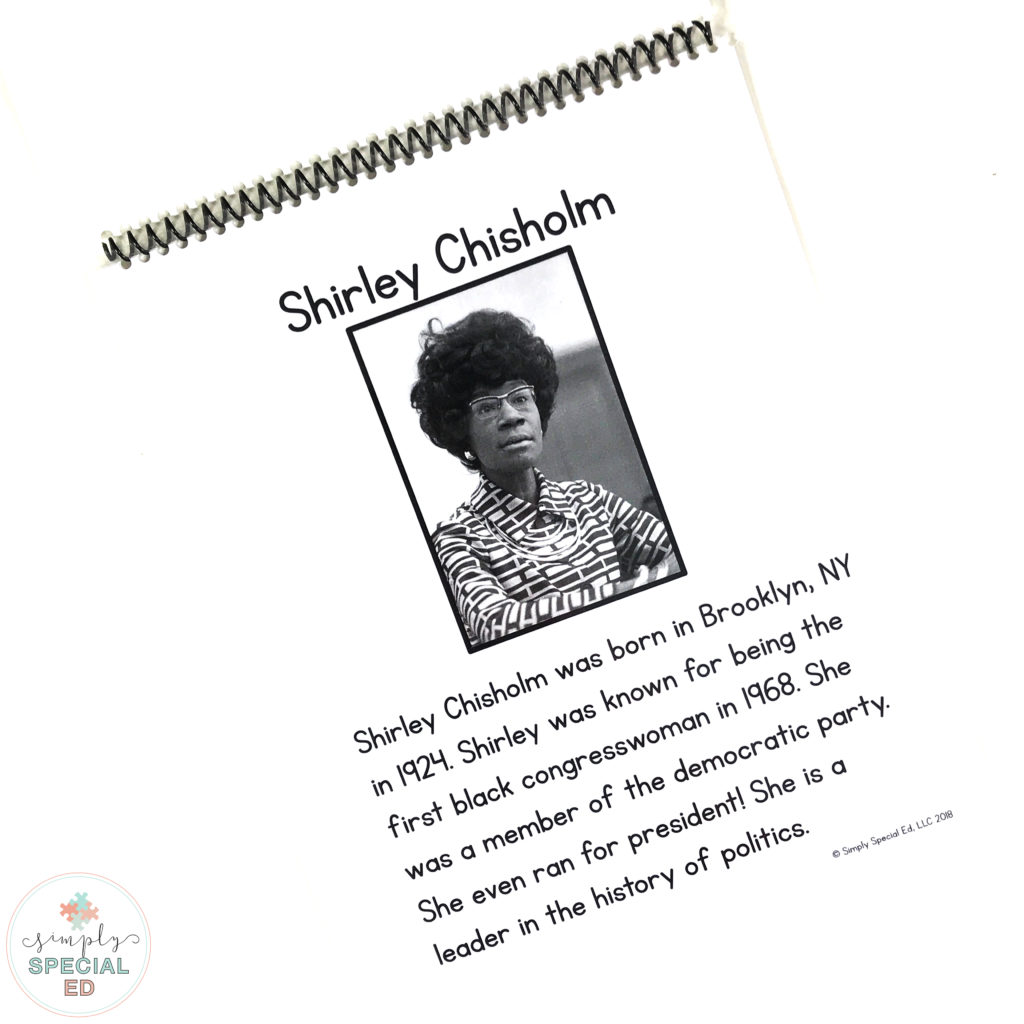 Shirley Chisholm
Shirley Chisholm was born in Brooklyn, NY
in 1924. Shirley was known for being the
first black congresswoman in 1968. She
was a member of the democratic party.
She even ran for president! She is a
leader in the history of politics.
© Simply Special Ed, LLC 2018
simply
SPECIAL
ED